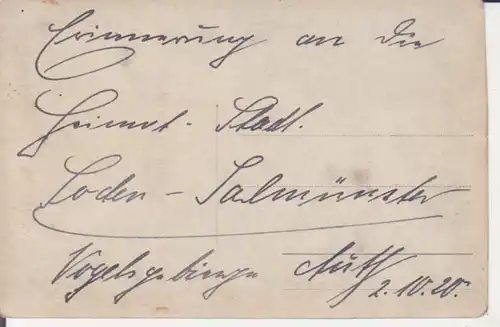 Erinnerung an die
Heimat-Stadt.
Soden-Salmünster
Vogelsgebirge
2.10.20.